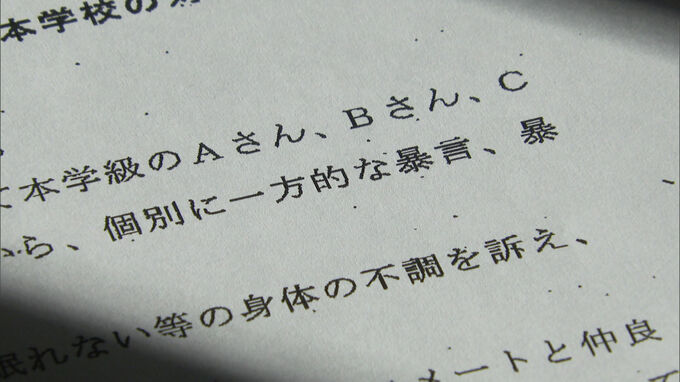 本学校の
本学級のAさん、Bさん、C
ら、個別に一方的な暴言、暴
眠れない等の身体の不調を訴え、
メートと仲良